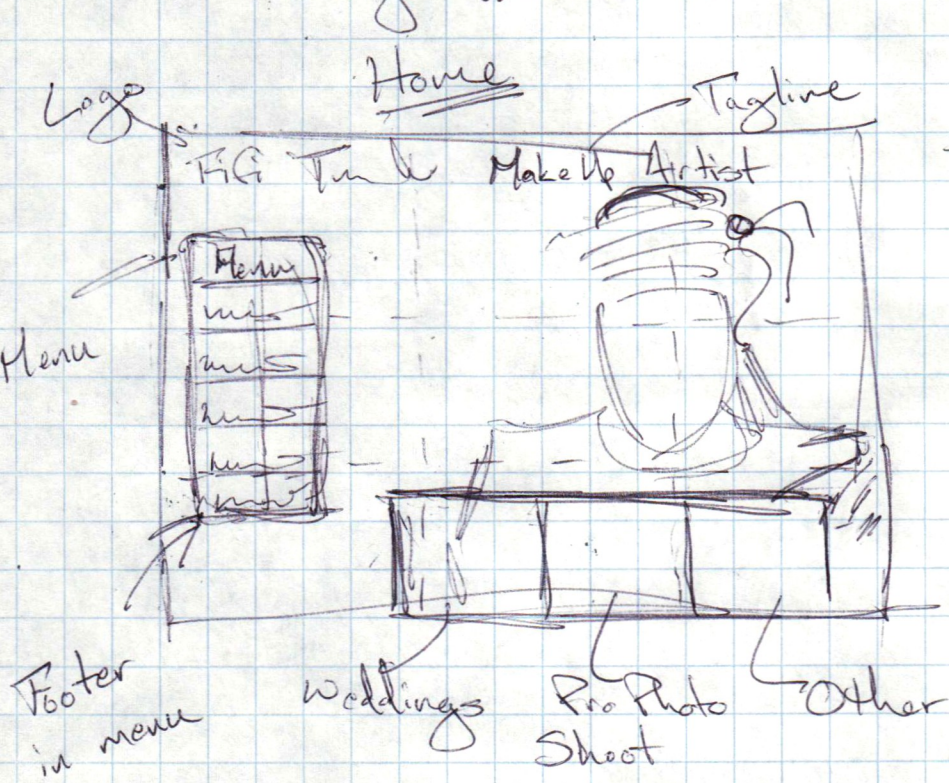 Home
Logo
Tagline
MakeUp Airtist
Menu
Menu
Footer
in menu
Weddings
Pro Photo
Shoot
Other